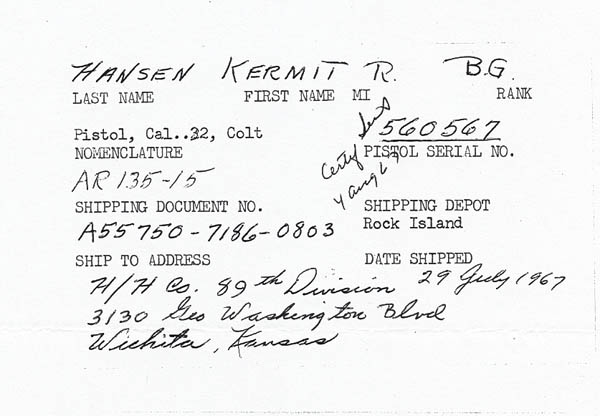 HANSEN KERMIT R. B.G.
LAST NAME FIRST NAME MI RANK
Pistol, Cal..32, Colt 560567
NOMENCLATURE PISTOL SERIAL NO.
Certy sent
4 Aug 67
AR 135-15
SHIPPING DOCUMENT NO. SHIPPING DEPOT
A55750-7186-0803 Rock Island
SHIP TO ADDRESS DATE SHIPPED
H/H Co. 89th Division 29 July 1967
3130 Geo Washington Blvd
Wichita, Kansas